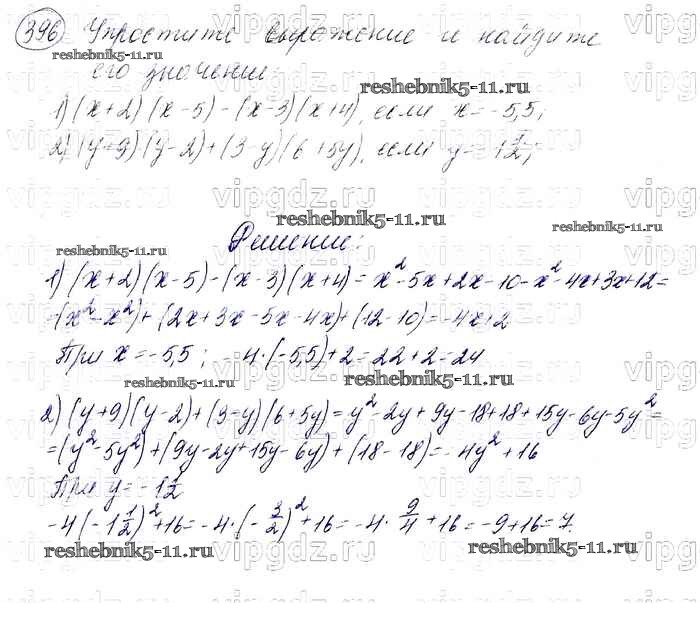 396. Упростите выражение и найдите
его значение:
1) (x+2)(x-5)-(x-3)(x+4), если x=-5,5;
2) (y+9)(y-2)+(3-y)(6+5y), если y=-1 1/2;
Решение:
1) (x+2)(x-5)-(x-3)(x+4)=x²-5x+2x-10-x²-4x+3x+12=
=(x²-x²)+(2x+3x-5x-4x)+(12-10)=-4x+2
При x=-5,5; -4·(-5,5)+2=22+2=24
2) (y+9)(y-2)+(3-y)(6+5y)=y²-2y+9y-18+18+15y-6y-5y²=
=(y²-5y²)+(9y-2y+15y-6y)+(18-18)=-4y²+16
При y=-1 1/2
-4(-1 1/2)²+16=-4·(-3/2)²+16=-4·9/4+16=-9+16=7.
reshebnik5-11.ru
vipgdz.ru